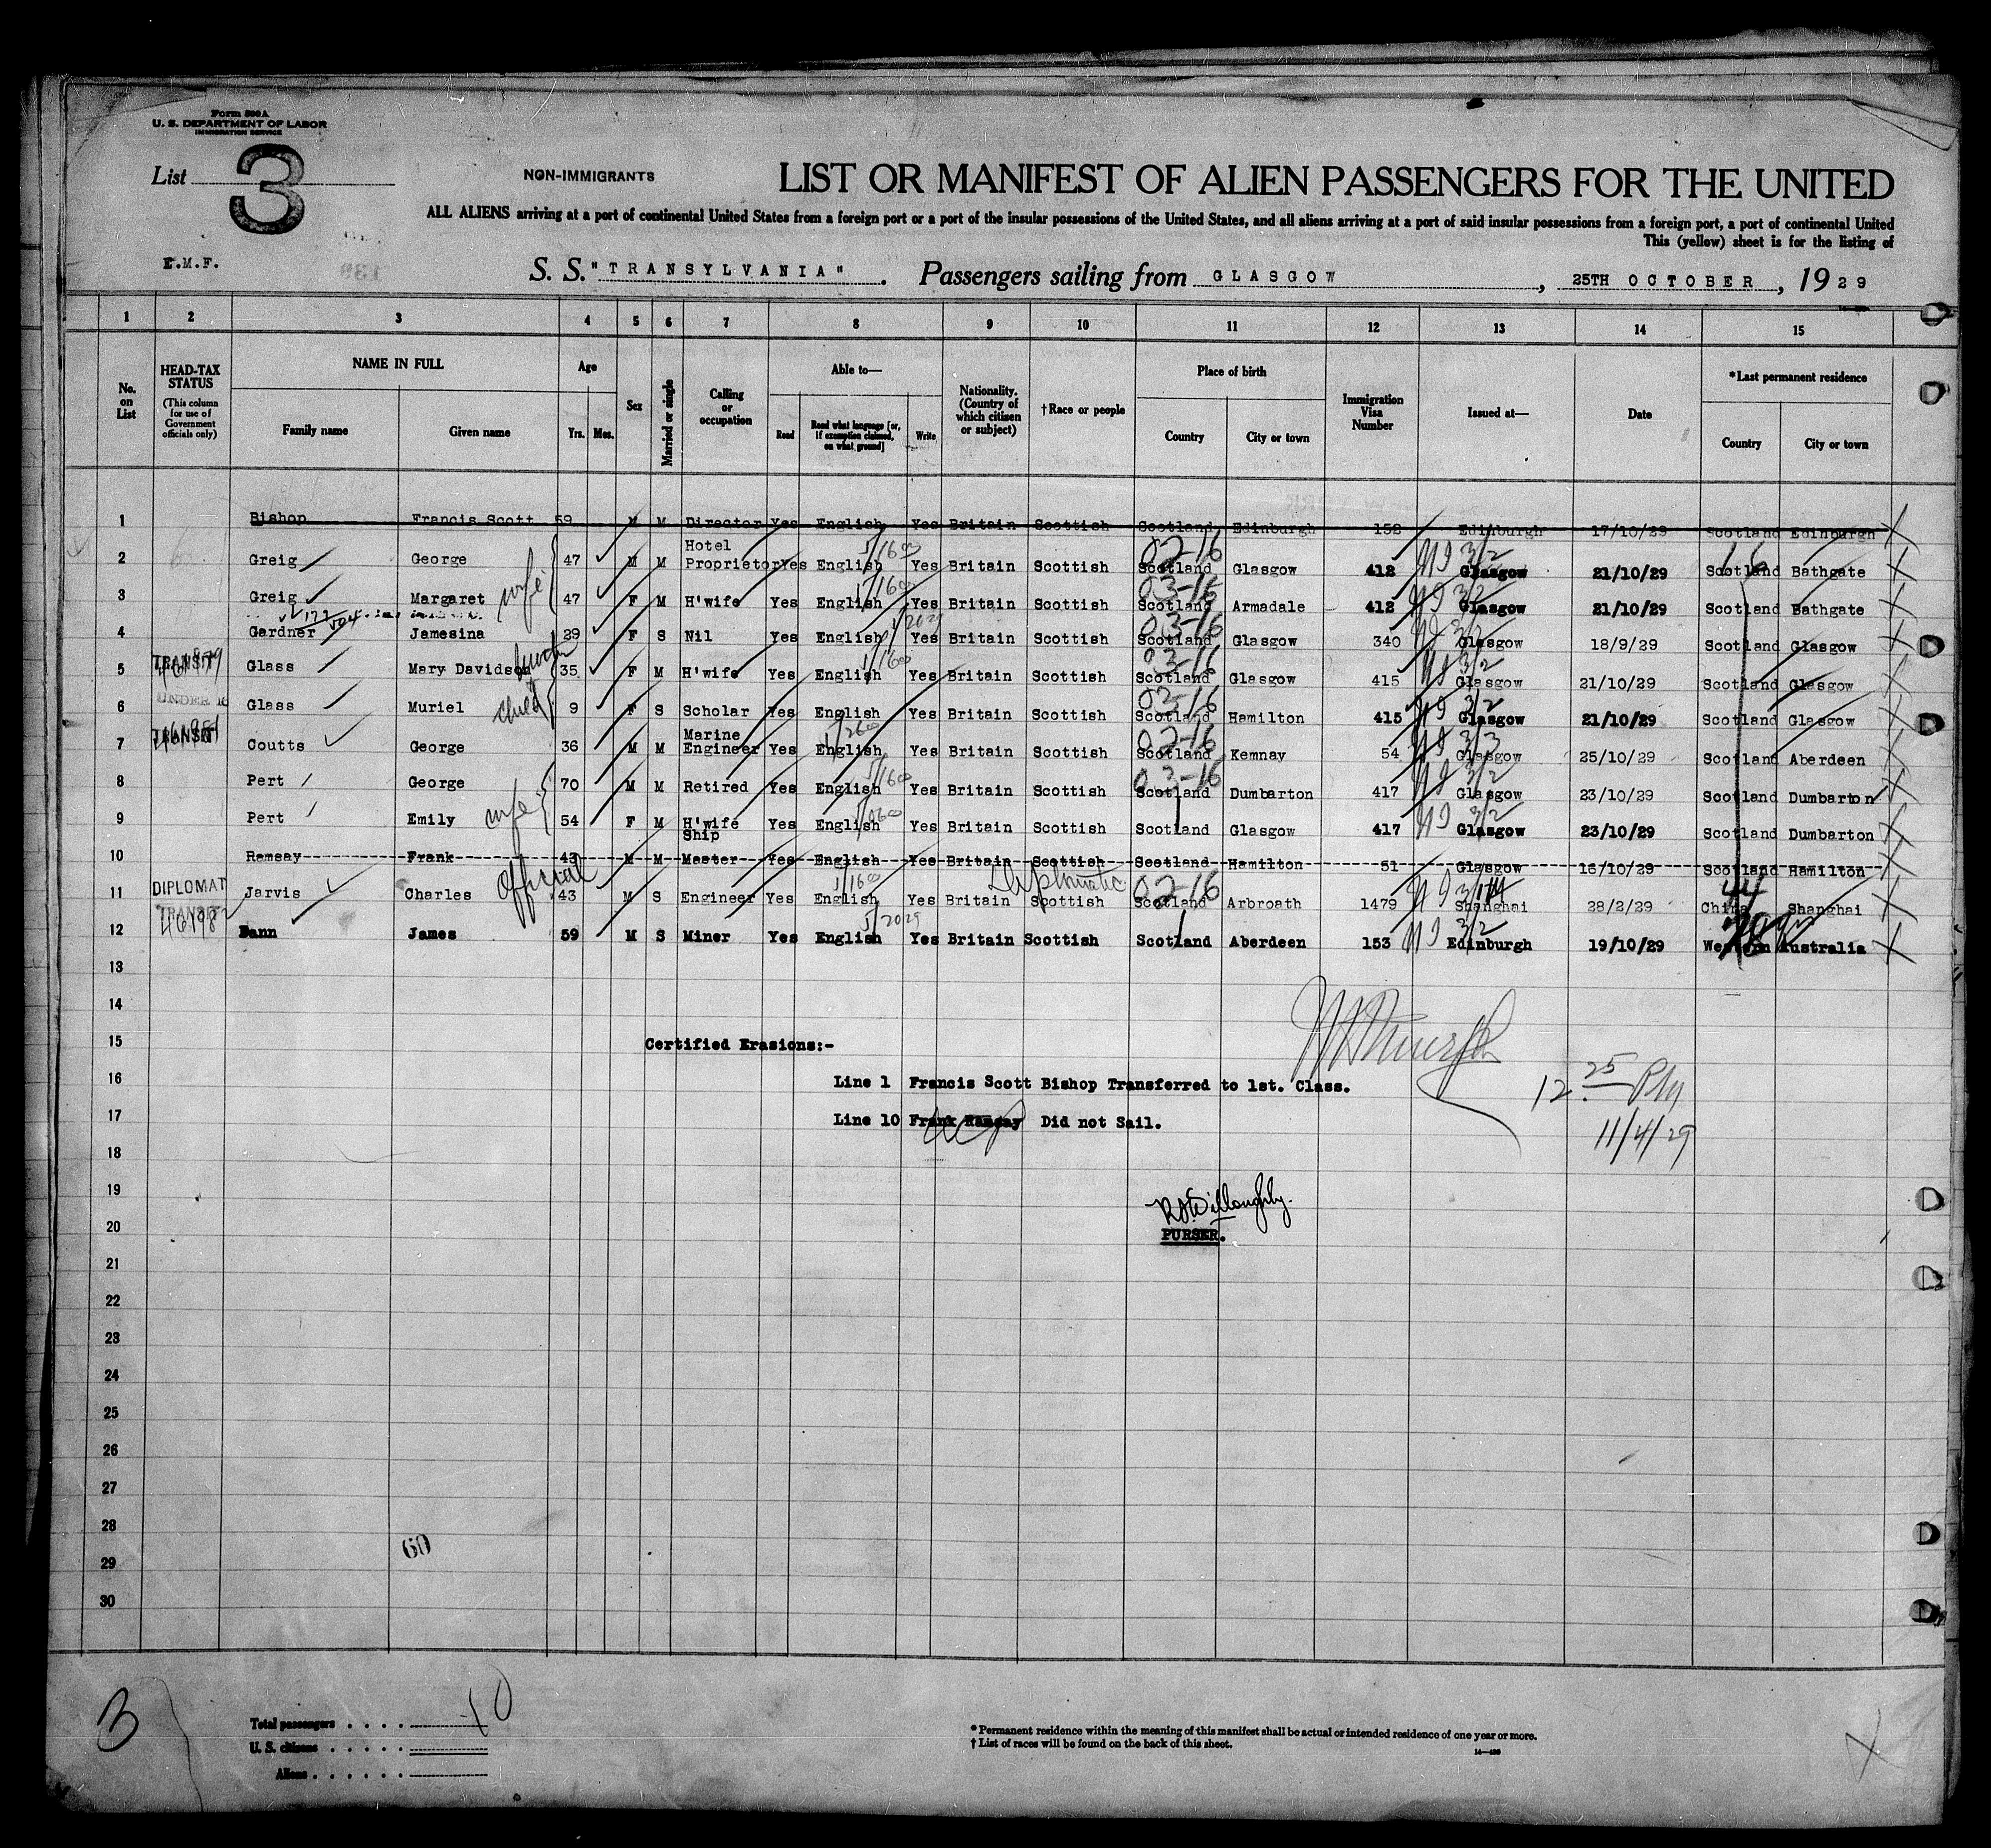 Form 500A
U. S. DEPARTMENT OF LABOR
IMMIGRATION SERVICE
List 3
NON-IMMIGRANTS
LIST OR MANIFEST OF ALIEN PASSENGERS FOR THE UNITED
ALL ALIENS arriving at a port of continental United States from a foreign port or a port of the insular possessions of the United States, and all aliens arriving at a port of said insular possessions from a foreign port, a port of continental United
This (yellow) sheet is for the listing of
E.M.F.
S. S. "TRANSYLVANIA". Passengers sailing from GLASGOW, 25TH OCTOBER, 1929
1 2 3 4 5 6 7 8 9 10 11 12 13 14 15
No. on List
HEAD-TAX STATUS
(This column for use of Government officials only)
NAME IN FULL
Family name Given name
Age
Yrs. Mos.
Sex
Married or single
Calling or occupation
Able to—
Read
Read what language [or, if exemption claimed, on what ground]
Write
Nationality. (Country of which citizen or subject)
†Race or people
Place of birth
Country City or town
Immigration Visa Number
Issued at—
Date
*Last permanent residence
Country City or town
1 Bishop Francis Scott 59 M M Director Yes English Yes Britain Scottish Scotland Edinburgh 152 Edinburgh 17/10/29 Scotland Edinburgh X
2 Greig George 47 M M Hotel Proprietor Yes English Yes Britain Scottish 02-16 Scotland Glasgow 412 Glasgow 21/10/29 Scotland Bathgate X
3 Greig Margaret wife 47 F M H'wife Yes English Yes Britain Scottish 03-16 Scotland Armadale 412 Glasgow 21/10/29 Scotland Bathgate X
4 Gardner Jamesina 29 F S Nil Yes English Yes Britain Scottish 03-16 Scotland Glasgow 340 Glasgow 18/9/29 Scotland Glasgow X
5 TRANSIT Glass Mary Davidson 35 F M H'wife Yes English Yes Britain Scottish Scotland Glasgow 415 Glasgow 21/10/29 Scotland Glasgow X
6 UNDER 16 Glass Muriel child 9 F S Scholar Yes English Yes Britain Scottish 03-16 Scotland Hamilton 415 Glasgow 21/10/29 Scotland Glasgow X
7 TRANSIT Coutts George 36 M M Marine Engineer Yes English Yes Britain Scottish 02-16 Scotland Kemnay 54 Glasgow 25/10/29 Scotland Aberdeen X
8 Pert George 70 M M Retired Yes English Yes Britain Scottish 02-16 Scotland Dumbarton 417 Glasgow 23/10/29 Scotland Dumbarton X
9 Pert Emily wife 54 F M H'wife Yes English Yes Britain Scottish Scotland Glasgow 417 Glasgow 23/10/29 Scotland Dumbarton X
10 Ramsay Frank 43 M M Ship Master Yes English Yes Britain Scottish Scotland Hamilton 51 Glasgow 16/10/29 Scotland Hamilton X
11 DIPLOMAT Jarvis Charles Official 43 M S Engineer Yes English Yes Britain Diplomatic Scottish 02-16 Scotland Arbroath 1479 Shanghai 28/2/29 China Shanghai X
12 TRANSIT Dann James 59 M S Miner Yes English Yes Britain Scottish Scotland Aberdeen 153 Edinburgh 19/10/29 Western Australia X
13
14
15 Certified Erasions:-
16 Line 1 Francis Scott Bishop Transferred to 1st. Class.
12.25 PM
17 Line 10 Frank Ramsay Did not Sail.
11/4/29
18
19 Willoughby.
20 PURSER.
21
22
23
24
25
26
27
28
60
29
30
3
Total passengers . . . . 10
U. S. citizens . . . . .
Aliens . . . . . .
* Permanent residence within the meaning of this manifest shall be actual or intended residence of one year or more.
† List of races will be found on the back of this sheet.
X